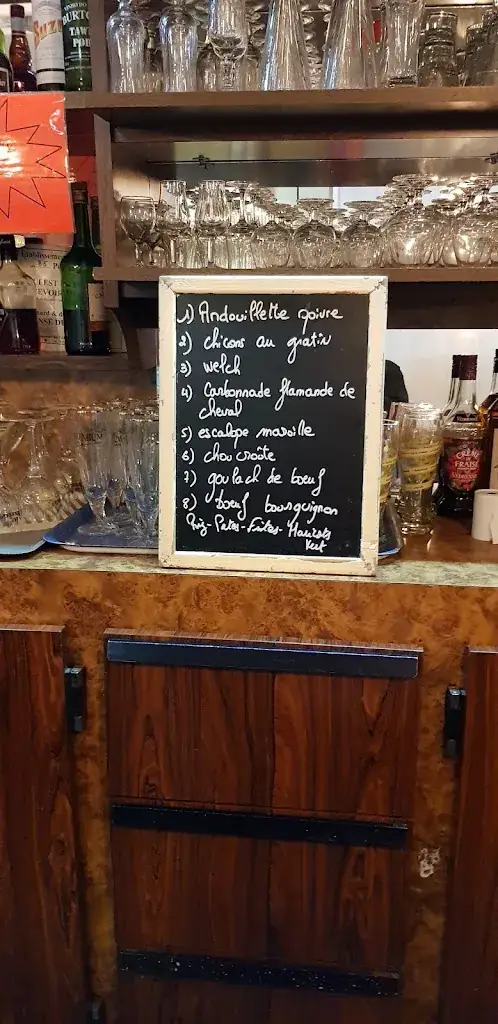 SUZ
BURTO
TAW
POR
1) Andouillette poivre
2) chicons au gratin
3) welch
4) Carbonnade flamande de
cheval
5) escalope maroille
6) choucroûte
7) goulach de boeuf
8) boeuf bourguignon
Riz - Pates - Frites - Haricots
Vert
CRÈME
FRAISE